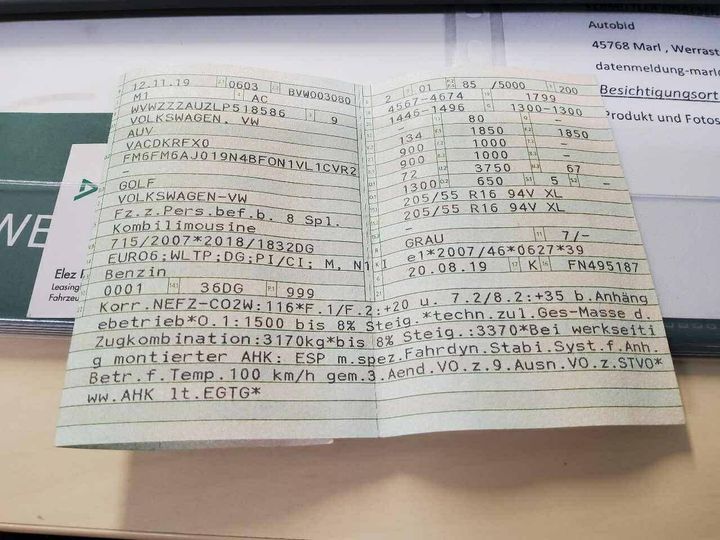 Autobid
45768 Marl , Werrast
datenmeldung-marl
Besichtigungsort
Produkt und Fotos
WE
Elez
Leasing
Fahrzeu
12.11.19 0603 BVW003080
M1 AC
WVWZZZAUZLP518586 9
VOLKSWAGEN, VW
AUV
VACDKRFX0
FM6FM6AJ019N4BFON1VL1CVR2
-
GOLF
VOLKSWAGEN-VW
Fz.z.Pers.bef.b. 8 Spl.
Kombilimousine
715/2007*2018/1832DG
EURO6;WLTP;DG;PI/CI; M, N1 I
Benzin
0001 36DG 999
2 01 85 /5000 200
4567-4674 1799
1446-1496 1300-1300
- 80 -
134 1850 1850
900 1000 -
900 1000 -
72 3750 67
1300 650 5 -
205/55 R16 94V XL
205/55 R16 94V XL
-
GRAU 7/-
e1*2007/46*0627*39
20.08.19 K FN495187
Korr.NEFZ-CO2W:116*F.1/F.2:+20 u. 7.2/8.2:+35 b.Anhäng
ebetrieb*O.1:1500 bis 8% Steig.*techn.zul.Ges-Masse d.
Zugkombination:3170kg*bis 8% Steig.:3370*Bei werkseiti
g montierter AHK: ESP m.spez.Fahrdyn.Stabi.Syst.f.Anh.
Betr.f.Temp.100 km/h gem.3.Aend.VO.z.9.Ausn.VO.z.STVO*
ww.AHK lt.EGTG*